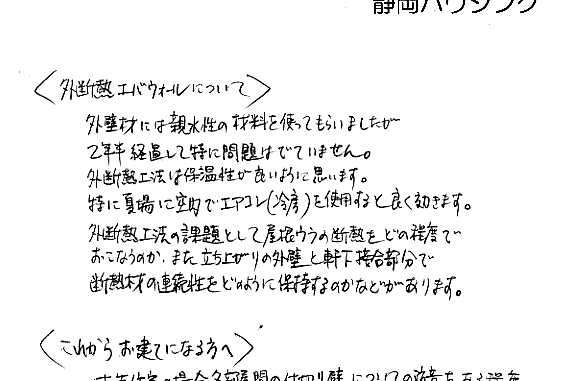 静岡ハウジング
〈外断熱エバウォールについて〉
外壁材には親水性の材料を使ってもらいましたが
2年半経過して特に問題はでていません。
外断熱工法は保温性が良いように思います。
特に夏場に室内でエアコン(冷房)を使用すると良く効きます。
外断熱工法の課題として屋根ウラの断熱をどの程度で
おこなうのか、また立ち上がりの外壁と軒下接合部分で
断熱材の連続性をどのように保持するのかなどがあります。
〈これからお建てになる方へ〉